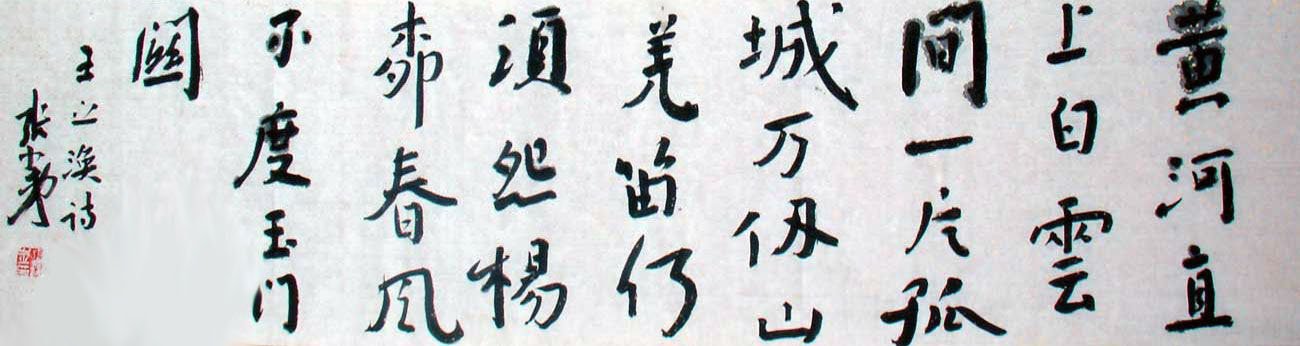 黄河直
上白雲
間一片孤
城万仞山
羌笛何
須怨楊
柳春风
不度玉门
關
王之渙诗